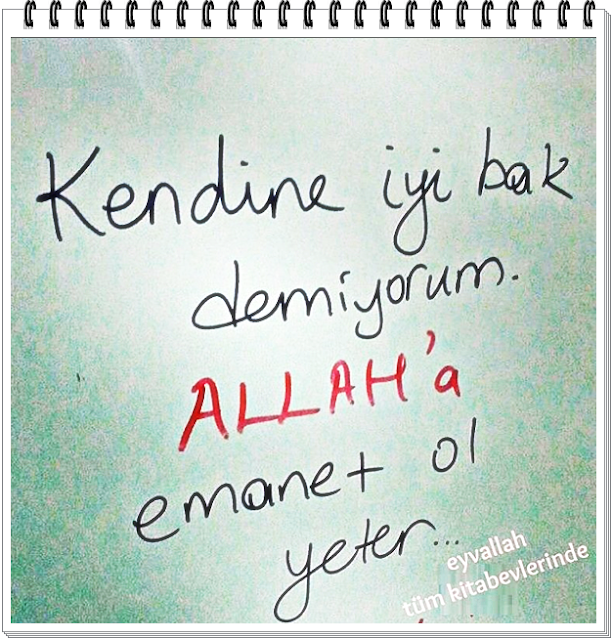 Kendine iyi bak
demiyorum.
ALLAH'a
emanet ol
yeter...
eyvallah
tüm kitabevlerinde